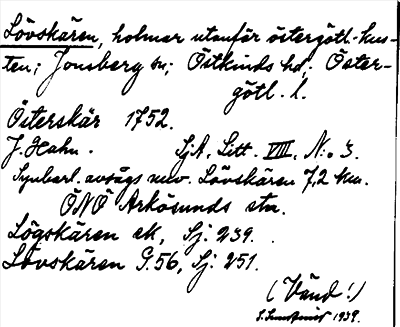 Lövskären, holmar utanför östergötl. kus-
ten; Jonsberg sn; Östkinds hd; Öster-
götl. l.
Österskär 1752.
J. Hahn. SjA, Litt. VIII, N:o 3.
Synbarl. avsågs nuv. Lövskären 7,2 km.
ÖNÖ Arkösunds stn.
Lögskären ek, Sj. 239.
Lövskären G.56, Sj. 251.
(Vänd!)
1939.